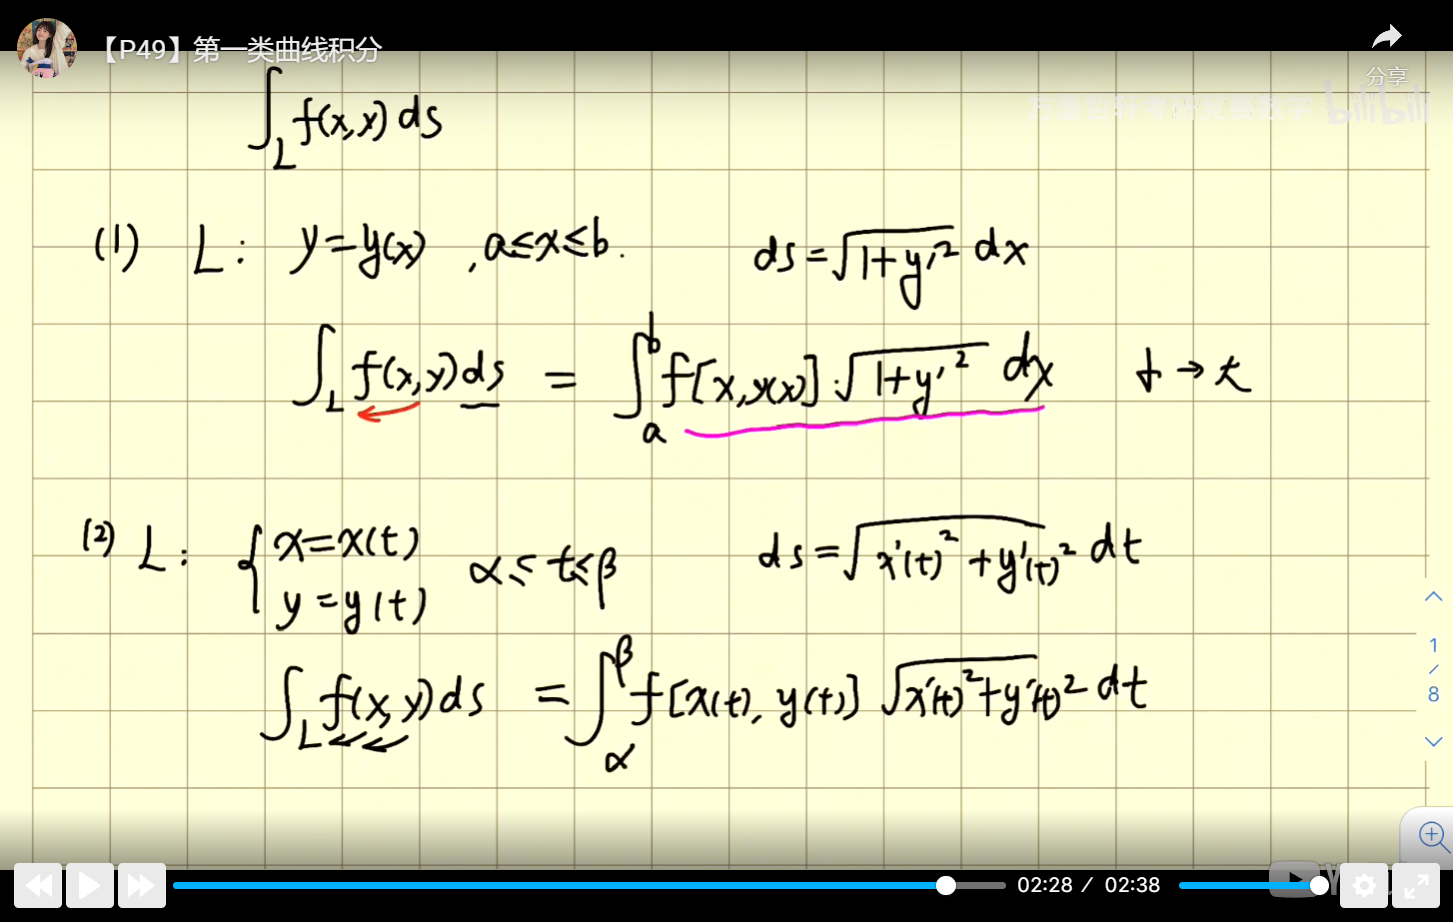 【P49】第一类曲线积分
分享
bilibili
∫_L f(x,x) ds
(1) L: y=y(x) , a≤x≤b. ds=√(1+y'²) dx
∫_L f(x,y)ds = ∫_a^b f[x,y(x)]·√(1+y'²) dx 小→大
(2) L: { x=x(t) y=y(t) α≤t≤β ds=√(x'(t)²+y'(t)²) dt
∫_L f(x,y)ds = ∫_α^β f[x(t), y(t)] √(x'(t)²+y'(t)²) dt
1
/
8
02:28 / 02:38